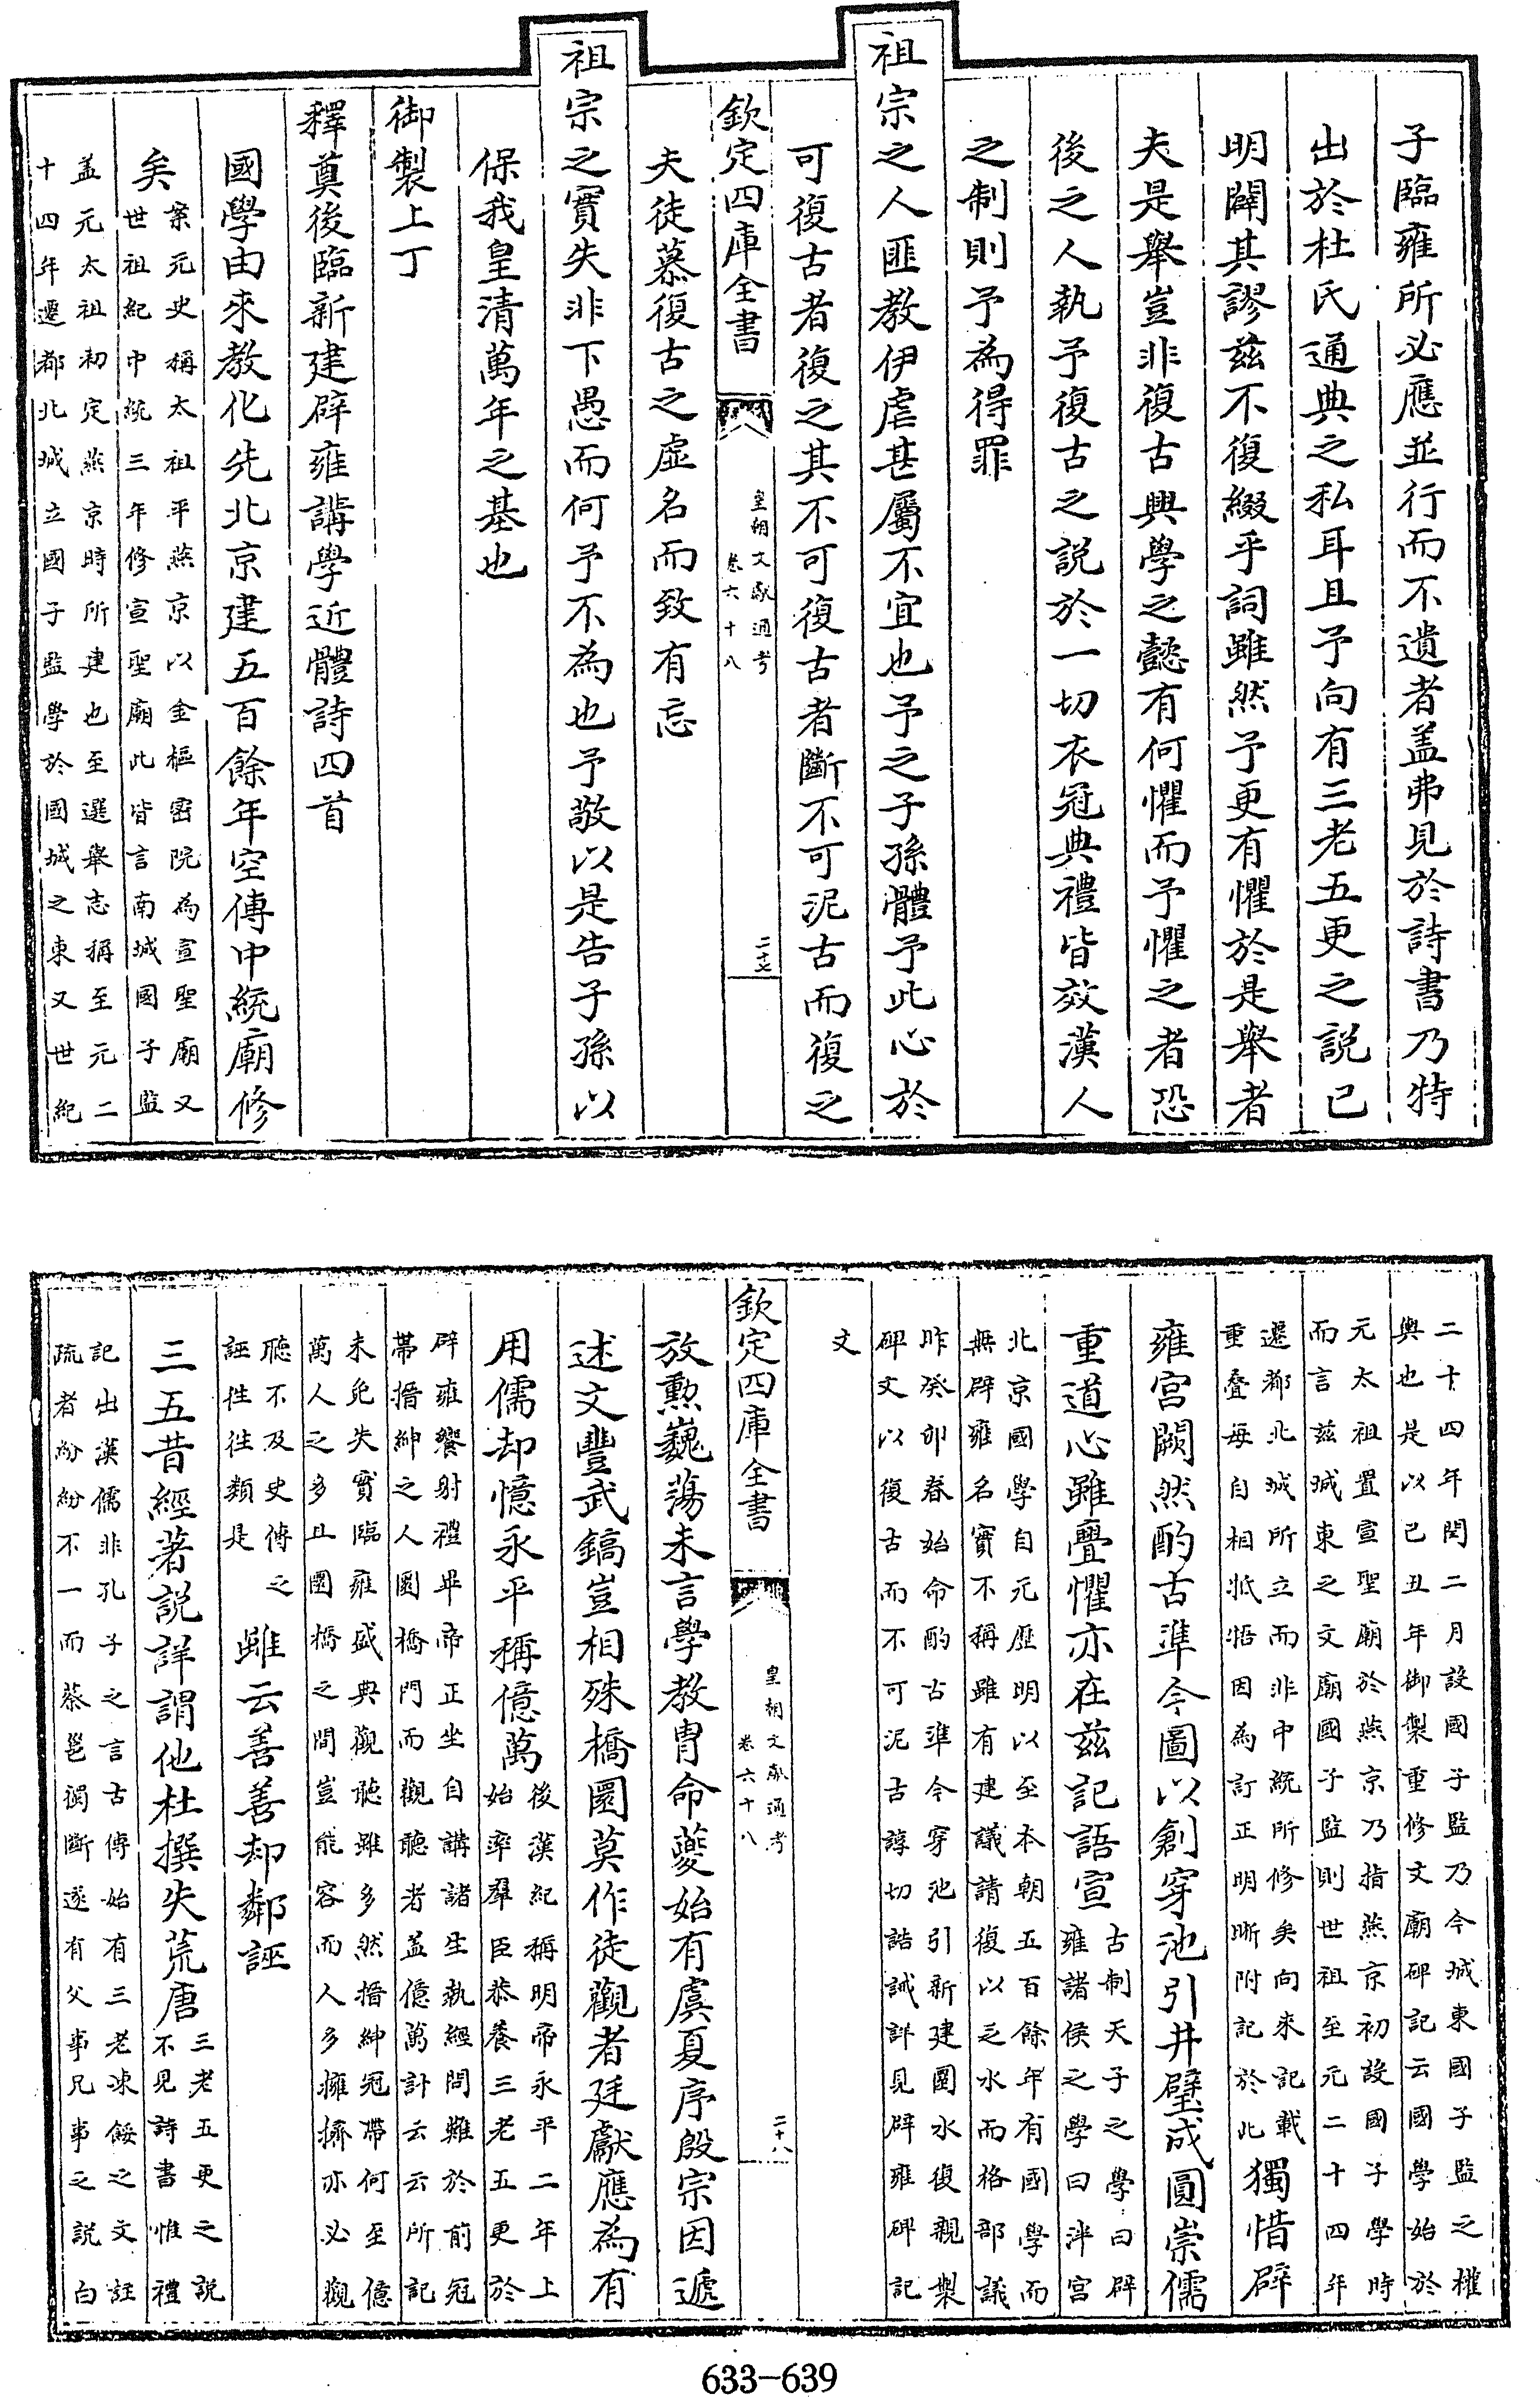 子臨雍所必應並行而不遺者盖弗見於詩書乃特
出於杜氏通典之私耳且予向有三老五更之説已
明闢其謬茲不復綴乎詞雖然予更有懼於是舉者
夫是舉豈非復古興學之懿有何懼而予懼之者恐
後之人執予復古之説於一切衣冠典禮皆效漢人
之制則予為得罪
祖宗之人匪教伊虐甚屬不宜也予之子孫體予此心於
可復古者復之其不可復古者斷不可泥古而復之
欽定四庫全書
皇朝文獻通考
卷六十八
二十七
夫徒慕復古之虛名而致有忘
祖宗之實失非下愚而何予不為也予敬以是告子孫以
保我皇清萬年之基也
御製上丁
釋奠後臨新建辟雍講學近體詩四首
國學由來教化先北京建五百餘年空傳中統廟修
矣
案元史稱太祖平燕京以金樞密院為宣聖廟又
世祖紀中統三年修宣聖廟此皆言南城國子監
盖元太祖初定燕京時所建也至選舉志稱至元二
十四年遷都北城立國子監學於國城之東又世紀
二十四年閏二月設國子監乃今城東國子監之權
輿也是以己丑年御製重修文廟碑記云國學始於
元太祖置宣聖廟於燕京乃指燕京初設國子學時
而言茲城東之文廟國子監則世祖至元二十四年
遷都北城所立而非中統所修矣向來記載
重疊每自相牴牾因為訂正明晰附記於此
獨惜辟
雍宮闕然酌古準今圖以創穿池引井璧成圓崇儒
重道心雖亹懼亦在茲記語宣
古制天子之學曰辟
雍諸侯之學曰泮宮
北京國學自元歷明以至本朝五百餘年有國學而
無辟雍名實不稱雖有建議請復以乏水而格部議
昨癸卯春始命酌古準今穿池引新建圜水復親製
碑文以復古而不可泥古諄切誥誡詳見辟雍碑記
文
欽定四庫全書
皇朝文獻通考
卷六十八
二十八
放勲巍蕩未言學教胄命夔始有虞夏序殷宗因遞
述文豐武鎬豈相殊橋圜莫作徒觀者廷獻應為有
用儒却憶永平稱億萬
後漢紀稱明帝永平二年上
始率羣臣恭養三老五更於
辟雍饗射禮畢帝正坐自講諸生執經問難於前冠
帶搢紳之人圜橋門而觀聽者盖億萬計云云所記
未免失實臨雍盛典觀聽雖多然搢紳冠帶何至億
萬人之多且圜橋之間豈能容而人多擁擠亦必觀
聽不及史傳之
誣往往類是
雖云善善却鄰誣
三五昔經著説詳謂他杜撰失荒唐
三老五更之説
不見詩書惟禮
記出漢儒非孔子之言古傳始有三老凍餒之文註
疏者紛紛不一而蔡邕獨斷遂有父事兄事之説白
633-639